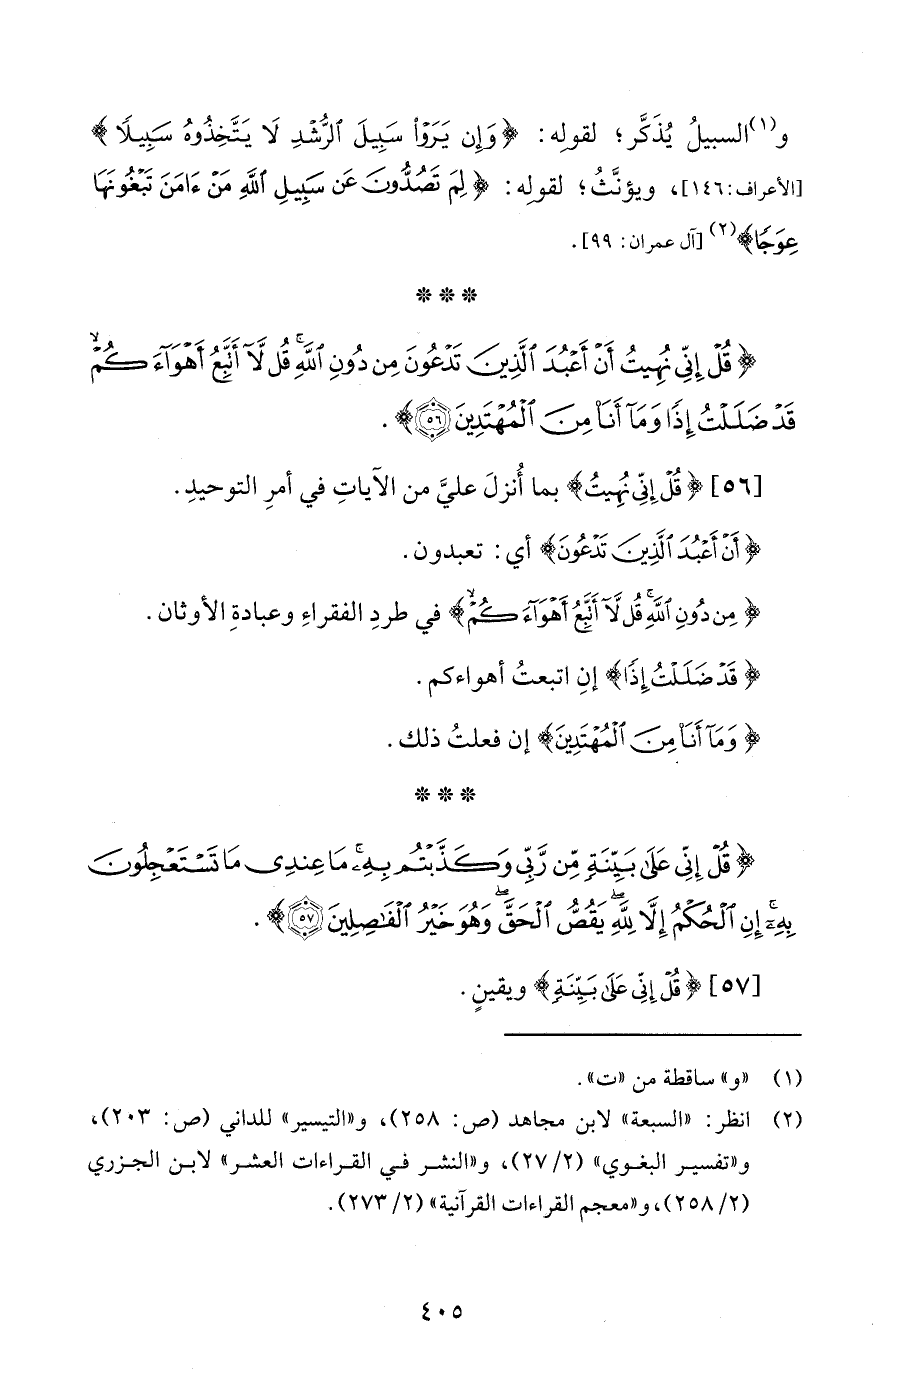 و(١)السبيلُ يُذَكَّر؛ لقولِه: ﴿وَإِن يَرَوْا سَبِيلَ الرُّشْدِ لَا يَتَّخِذُوهُ سَبِيلًا﴾
[الأعراف: ١٤٦]، ويؤنَّثُ؛ لقولِه: ﴿لِمَ تَصُدُّونَ عَن سَبِيلِ اللَّهِ مَنْ ءَامَنَ تَبْغُونَهَا
عِوَجًا﴾(٢) [آل عمران: ٩٩].
* * *
﴿قُلْ إِنِّي نُهِيتُ أَنْ أَعْبُدَ الَّذِينَ تَدْعُونَ مِن دُونِ اللَّهِ ۚ قُل لَّا أَتَّبِعُ أَهْوَآءَكُمْ ۙ
قَدْ ضَلَلْتُ إِذًا وَمَآ أَنَا۠ مِنَ الْمُهْتَدِينَ ٥٦﴾.
[٥٦] ﴿قُلْ إِنِّي نُهِيتُ﴾ بما أُنزلَ عليَّ من الآياتِ في أمرِ التوحيدِ.
﴿أَنْ أَعْبُدَ الَّذِينَ تَدْعُونَ﴾ أي: تعبدون.
﴿مِن دُونِ اللَّهِ ۚ قُل لَّا أَتَّبِعُ أَهْوَآءَكُمْ ۙ﴾ في طردِ الفقراءِ وعبادةِ الأوثان.
﴿قَدْ ضَلَلْتُ إِذًا﴾ إنِ اتبعتُ أهواءكم.
﴿وَمَآ أَنَا۠ مِنَ الْمُهْتَدِينَ﴾ إن فعلتُ ذلك.
* * *
﴿قُلْ إِنِّي عَلَىٰ بَيِّنَةٍ مِّن رَّبِّي وَكَذَّبْتُم بِهِ ۚ مَا عِندِي مَا تَسْتَعْجِلُونَ
بِهِ ۚ إِنِ الْحُكْمُ إِلَّا لِلَّهِ ۖ يَقُصُّ الْحَقَّ ۖ وَهُوَ خَيْرُ الْفَاصِلِينَ ٥٧﴾.
[٥٧] ﴿قُلْ إِنِّي عَلَىٰ بَيِّنَةٍ﴾ ويقينٍ.
(١) «و» ساقطة من «ت».
(٢) انظر: «السبعة» لابن مجاهد (ص: ٢٥٨)، و«التيسير» للداني (ص: ٢٠٣)،
و«تفسير البغوي» (٢/ ٢٧)، و«النشر في القراءات العشر» لابن الجزري
(٢/ ٢٥٨)، و«معجم القراءات القرآنية» (٢/ ٢٧٣).
٤٠٥